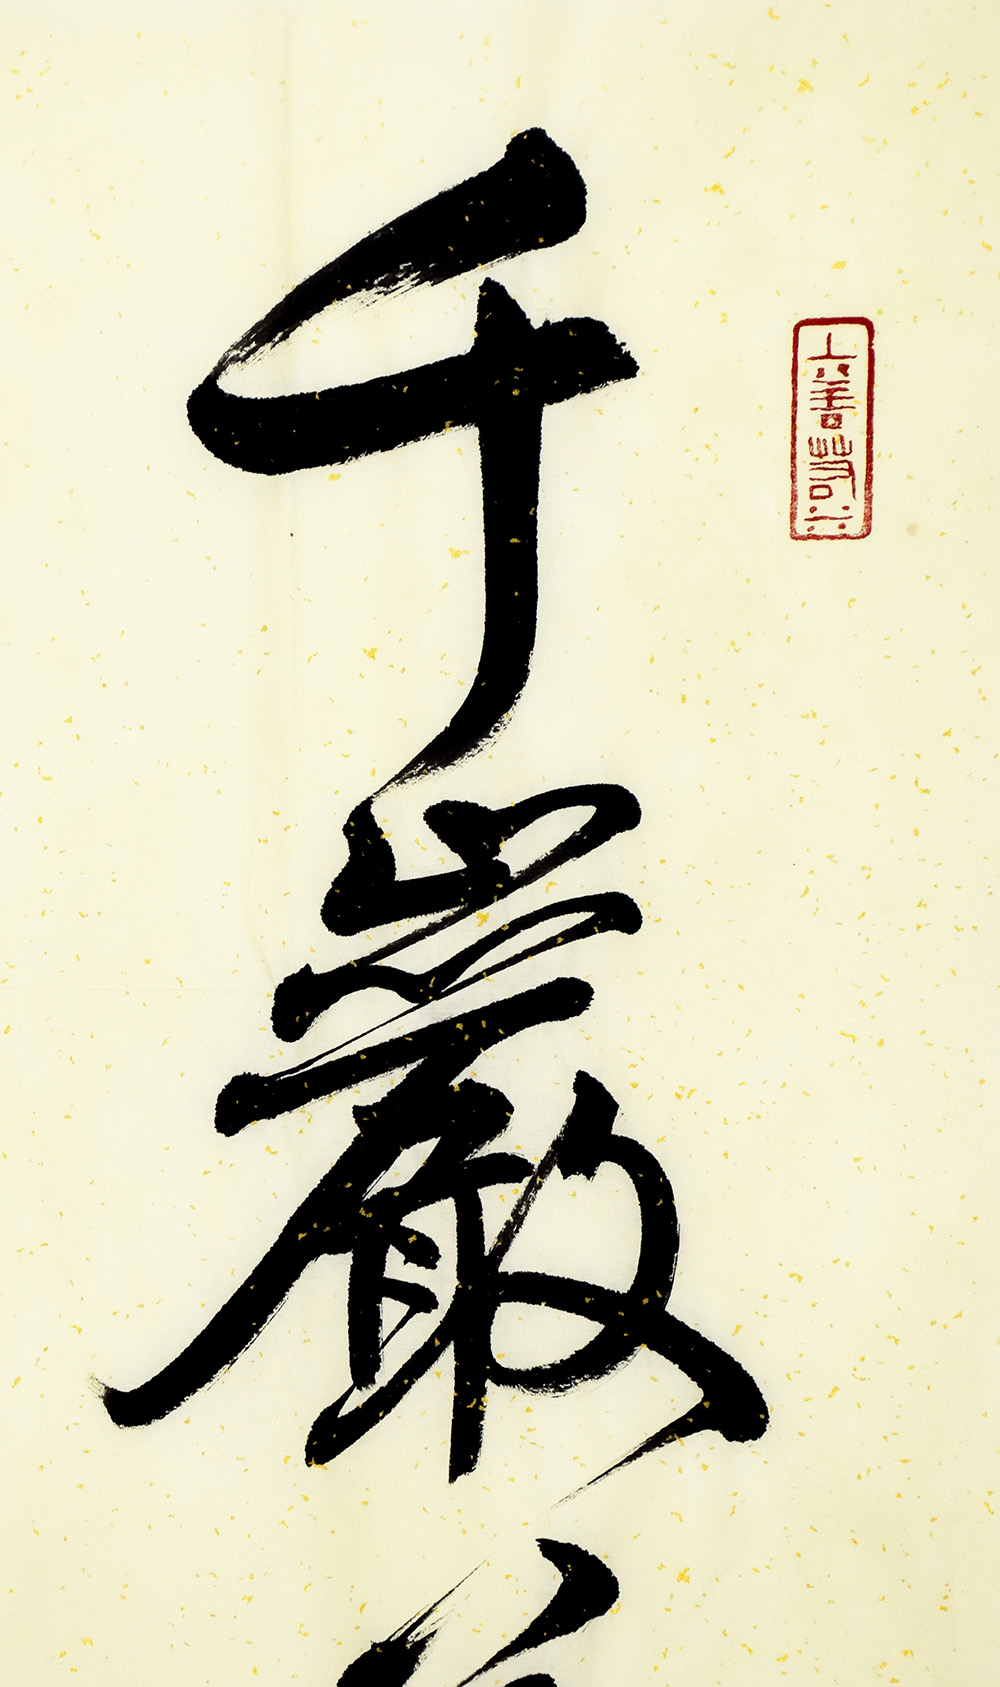 上善若水
千巖